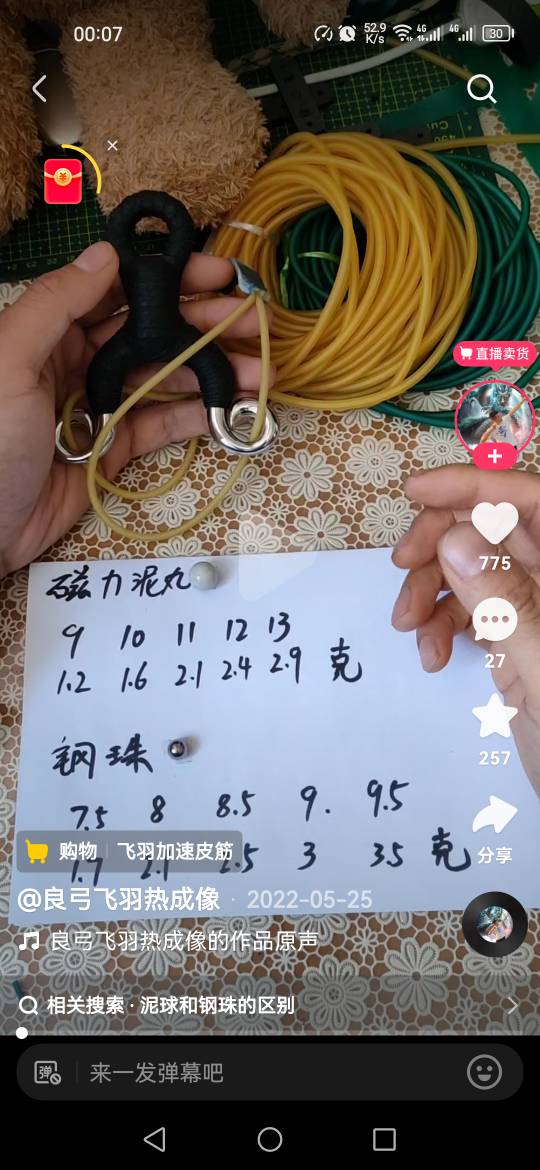 00:07
52.9
K/s
4G
4G
30
直播卖货
磁力泥丸
9 10 11 12 13
1.2 1.6 2.1 2.4 2.9 克
775
27
钢珠
257
7.5 8 8.5 9. 9.5
1.7 2.1 2.5 3 3.5 克
购物 飞羽加速皮筋
分享
@良弓飞羽热成像 · 2022-05-25
良弓飞羽热成像的作品原声
相关搜索 · 泥球和钢珠的区别
弹 来一发弹幕吧